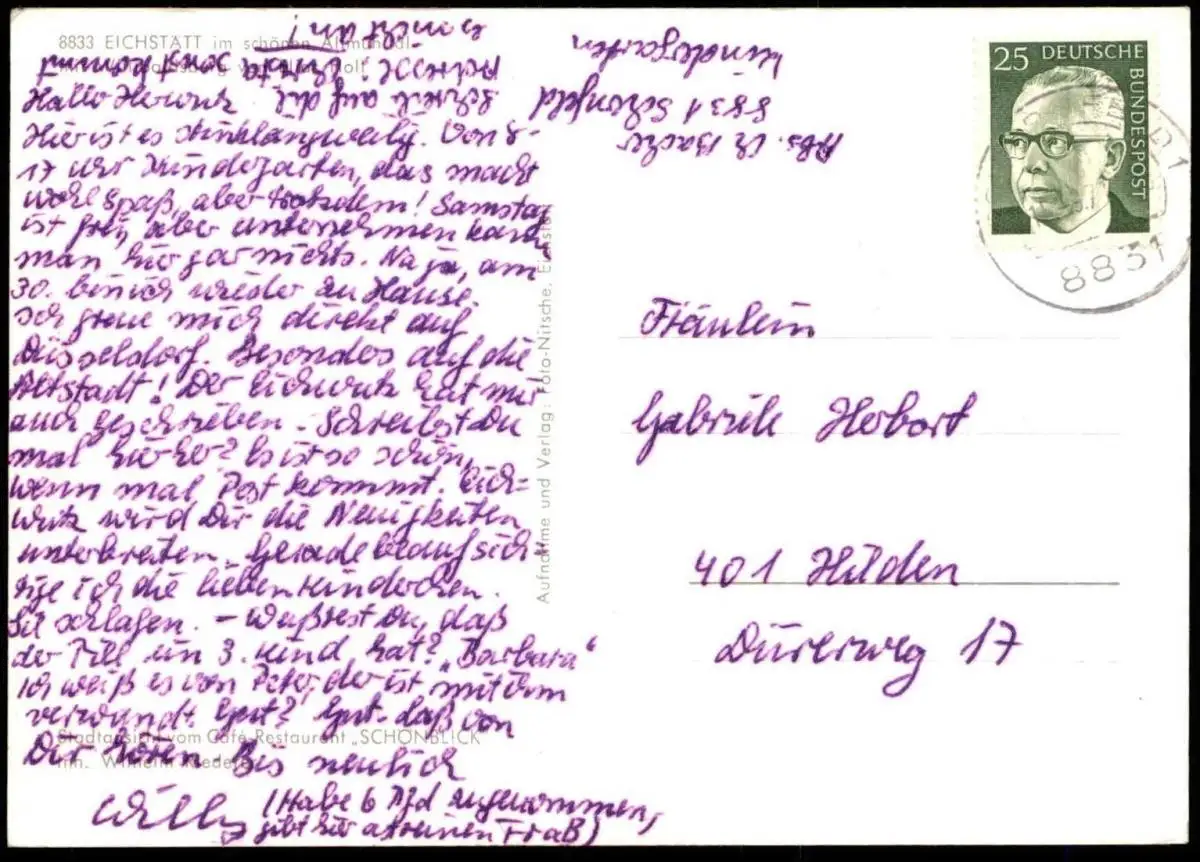 8833 EICHSTÄTT im schönen Altmühltal
Hallo Herwutz
Hier ist es stinklangweilig. Von 8-
17 Uhr Kindergarten, das macht
wohl Spaß, aber trotzdem! Samstag
ist frei, aber unternehmen kann
man hier gar nichts. Na ja, am
30. bin ich wieder zu Hause.
Ich freue mich direkt auf
Düsseldorf. Besonders auf die
Altstadt! Der Eichwutz hat mir
auch geschrieben. Schreibst Du
mal hierher? Es ist so schön,
wenn mal Post kommt. Eich=
wutz wird Dir die Neuigkeiten
unterbreiten. Gerade beaufsich-
tige ich die lieben Kinderchen.
Sie schlafen. – Weißtest Du, daß
der Pill ein 3. Kind hat? „Barbara"
Ich weiß es von Peter, der ist mit ihm
verwandt. Gut-daß von
Dir hören. Bis neulich
Willy (Habe 6 Pfd zugenommen,
gibt hier einen Fraß)
Stadtansicht vom Café-Restaurant „SCHÖNBLICK"
Inh. Wilhelm
Schreib auf die
Adresse: sonst kommt
s nicht an!
Abs. Bacher
8831 Schönfeld
Kindergarten
Aufnahme und Verlag: Foto-Nitsche, Eichstätt
25 DEUTSCHE
BUNDESPOST
8831
Fräulein
Gabriele Hobort
401 Hilden
Dürerweg 17